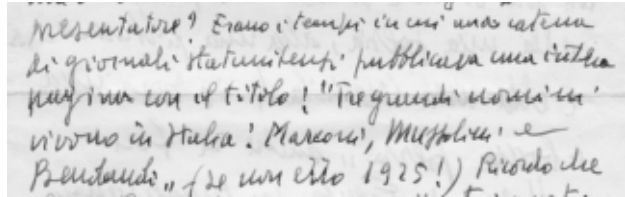 presentatore? Erano i tempi in cui una catena
di giornali statunitensi pubblicava una intera
pagina con il titolo: "Tre grandi uomini
vivono in Italia: Marconi, Mussolini e
Bendandi" (se non erro 1925!) Ricordo che